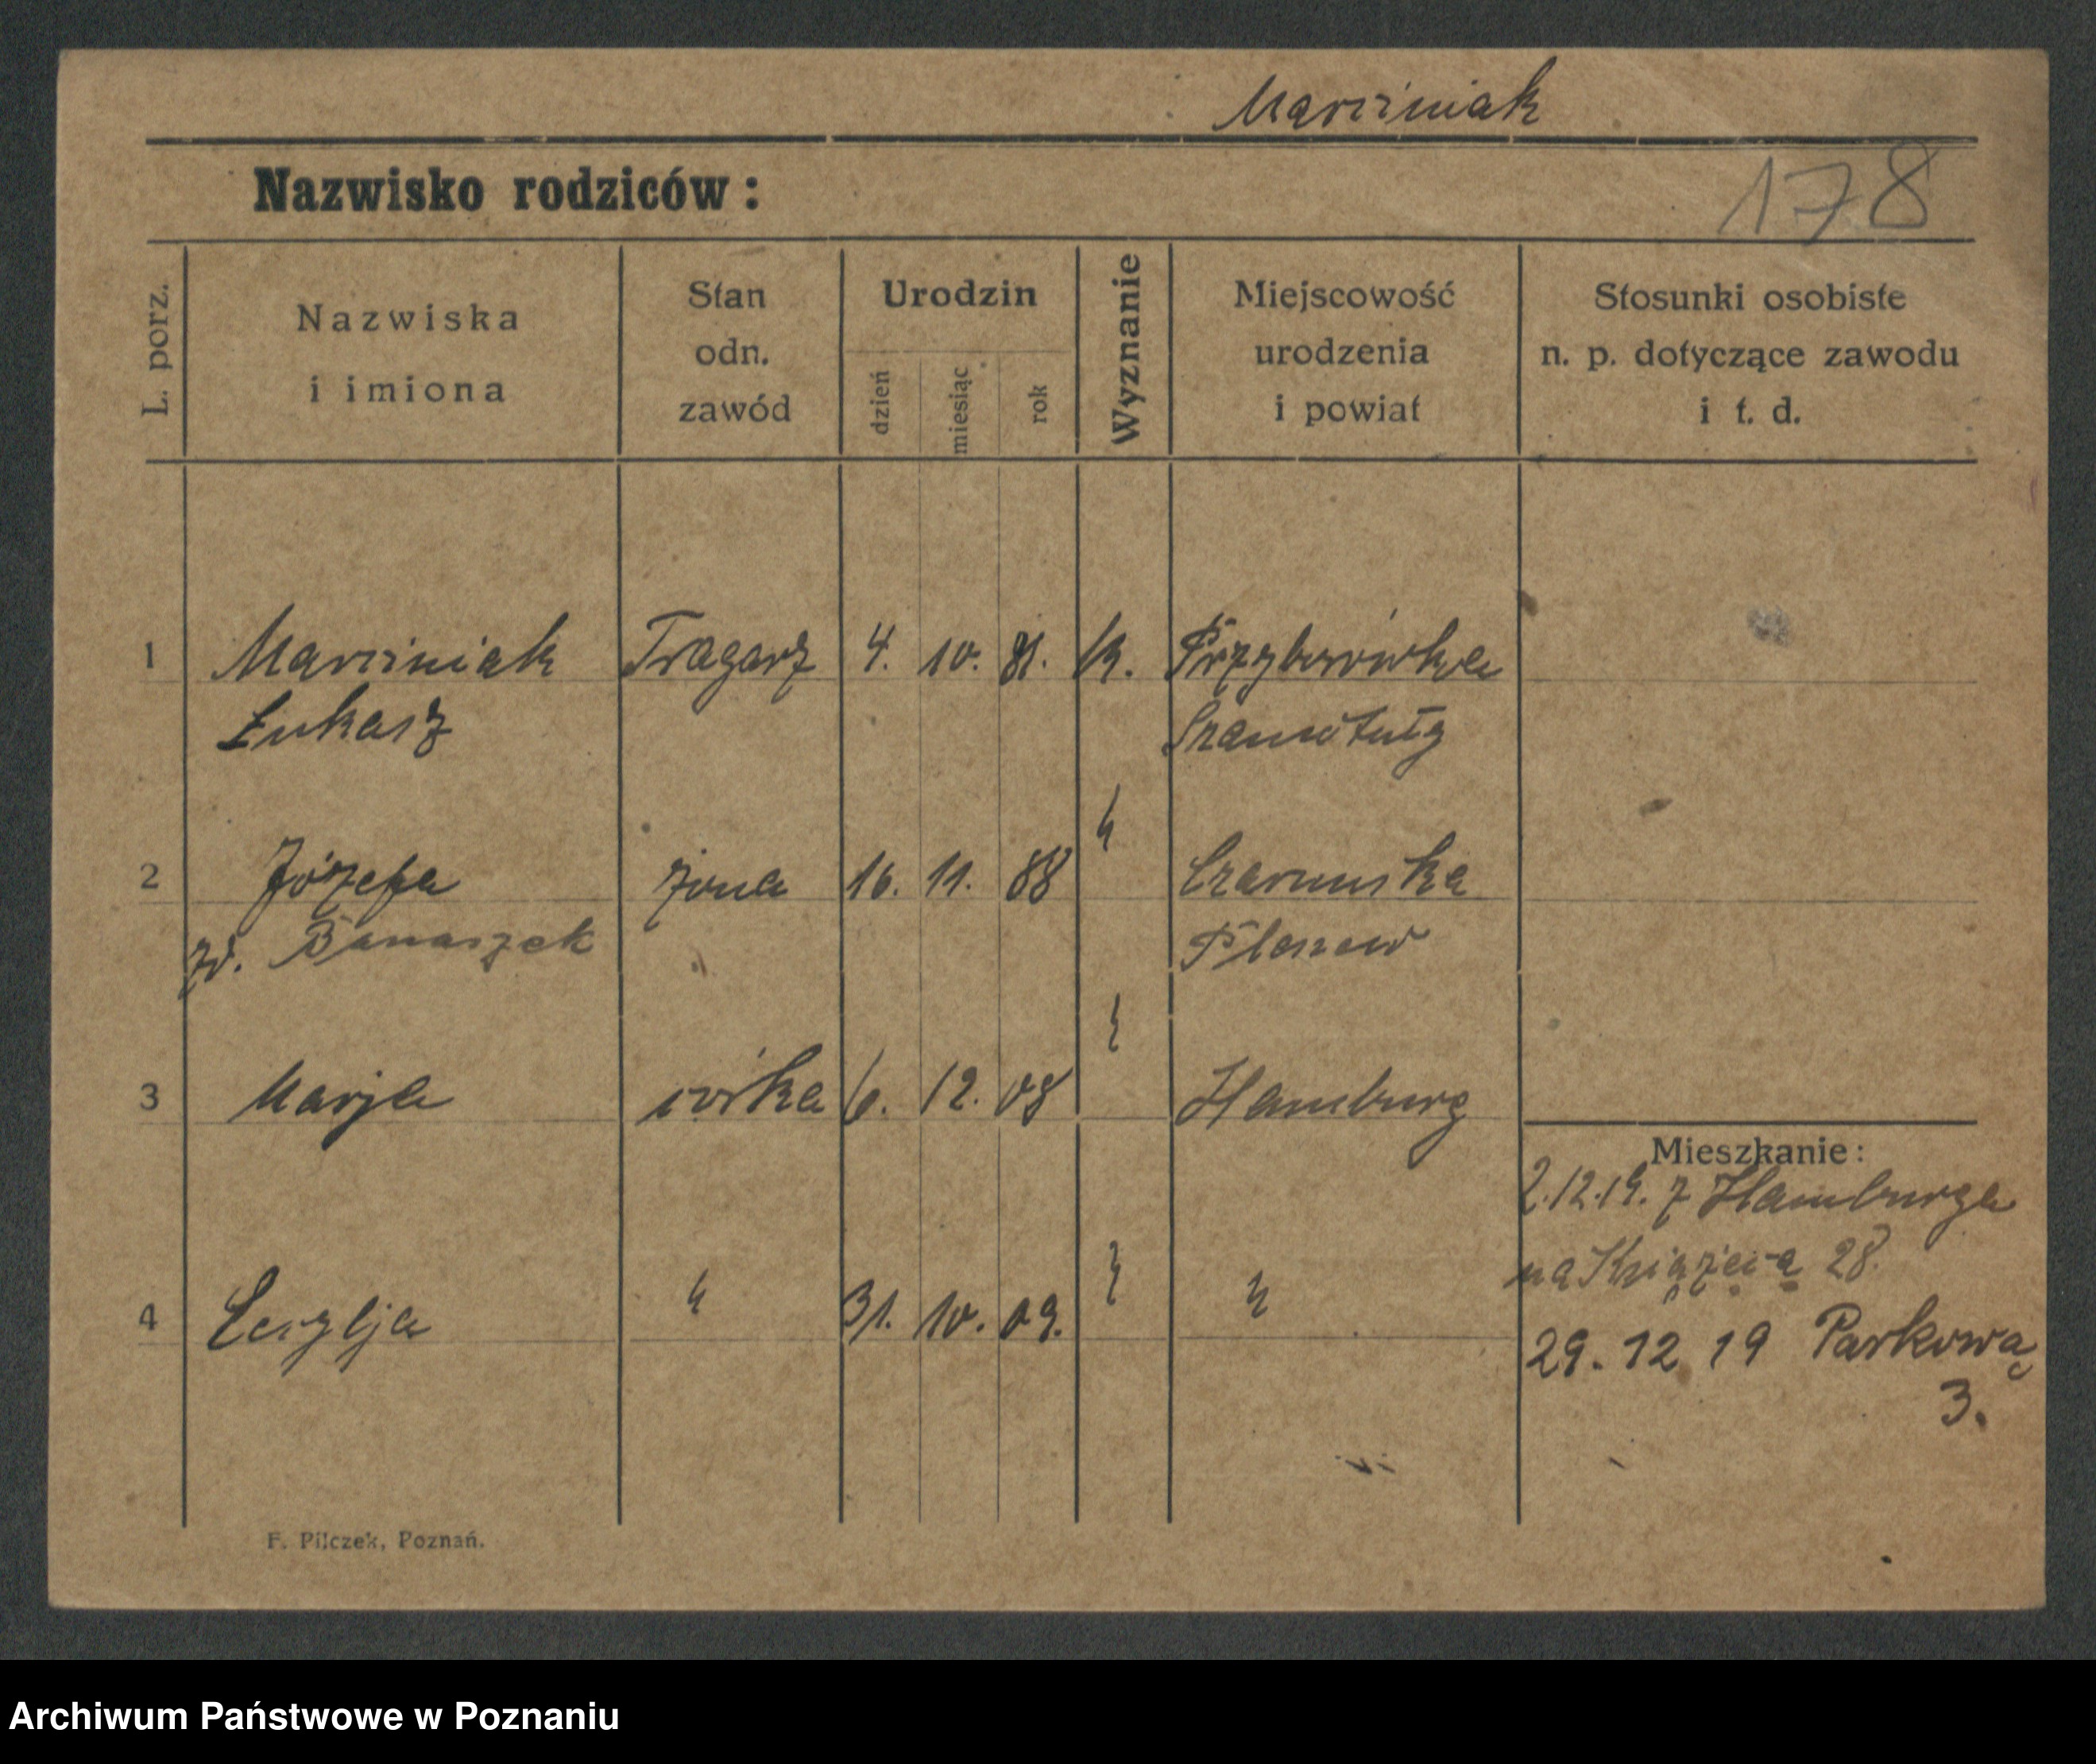 Marciniak
Nazwisko rodziców:
178
L. porz.
Nazwiska
i imiona
Stan
odn.
zawód
Urodzin
dzień
miesiąc
rok
Wyznanie
Miejscowość
urodzenia
i powiat
Stosunki osobiste
n. p. dotyczące zawodu
i t. d.
1 Marciniak Tragarz 4. 10. 81. k. Przyborówka
Łukasz Szamotuły
2 Józefa żona 16. 11. 88 " Czarnuska
zd. Banaszek Pleszew
3 Marja córka 6. 12. 08 " Hamburg
Mieszkanie:
2.12.19. z Hamburga
na Książęca 28.
4 Cecylja " 31. 10. 09. " "
29. 12 19 Parkową
3.
F. Pilczek, Poznań.
Archiwum Państwowe w Poznaniu